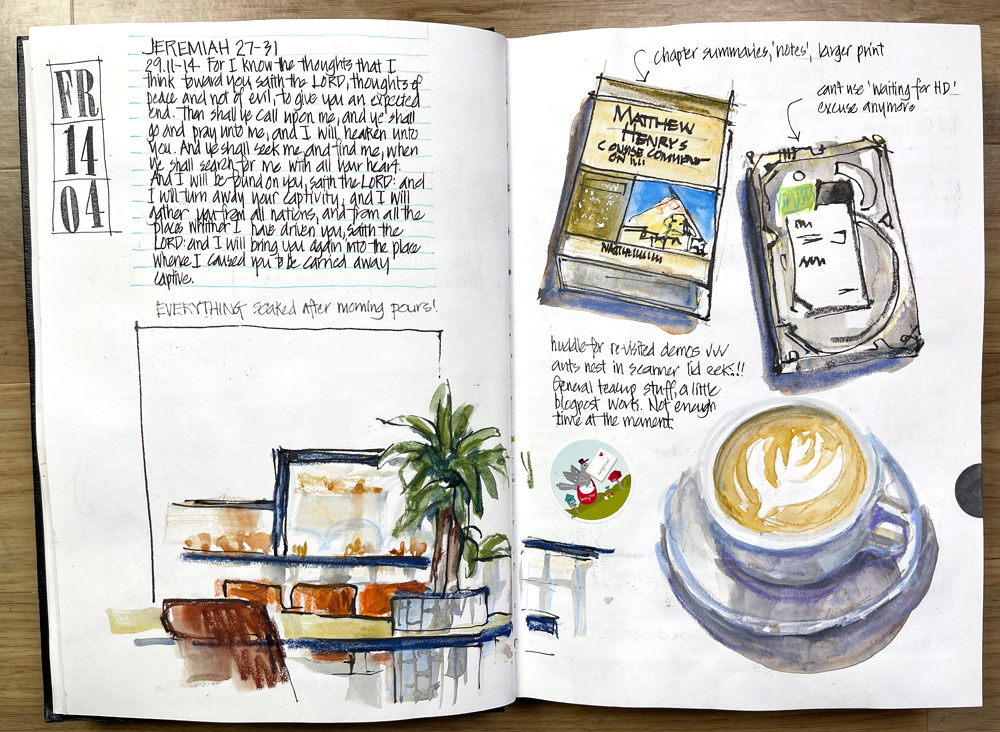 FR
14
04
JEREMIAH 27-31
29.11-14 For I know the thoughts that I
think toward you, saith the LORD, thoughts of
peace and not of evil, to give you an expected
end. Then shall ye call upon me, and ye shall
go and pray unto me, and I will heaken unto
you. And ye shall seek me, and find me, when
ye shall search for me with all your heart.
And I will be found on you, saith the LORD: and
I will turn away your captivity, and I will
gather you from all nations, and from all the
places whither I have driven you, saith the
LORD: and I will bring you again into the place
where I caused you to be carried away
captive.
EVERYTHING soaked after morning pours!
chapter summaries, 'notes', larger print
can't use 'waiting for HD'
excuse anymore
MATTHEW
HENRY'S
CONCISE COMMENT
ON
huddle for re-visited demos vvv
ants nest in scanner lid eek..!!
General teacup stuff, a little
blogpost work. Not enough
time at the moment.